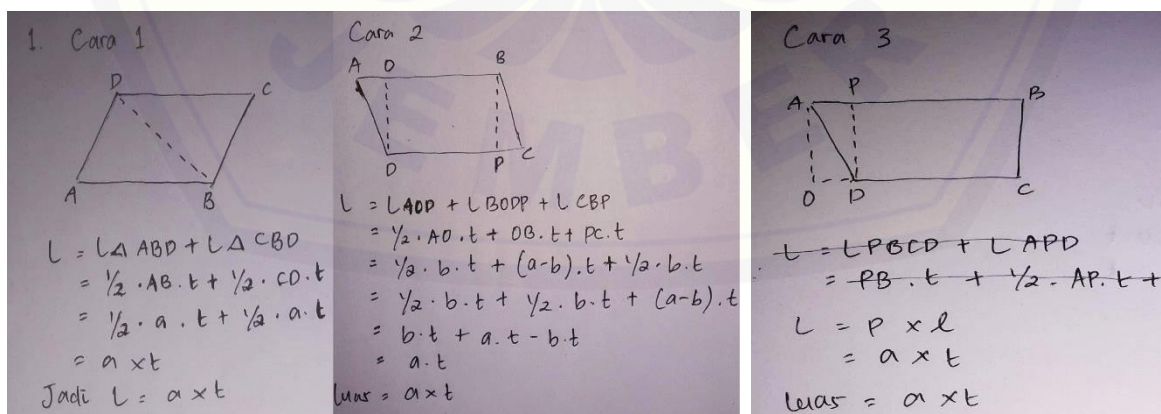 1. Cara 1
D
C
A
B
L = L△ ABD + L△ CBD
= 1/2 · AB. t + 1/2 · CD. t
= 1/2 · a . t + 1/2 · a. t
= a x t
Jadi L = a x t
Cara 2
A O B
D P C
L = LAOD + L BODP + L CBP
= 1/2 . AO . t + OB. t + PC. t
= 1/2 . b . t + (a-b). t + 1/2 . b. t
= 1/2 . b . t + 1/2 . b. t + (a-b). t
= b. t + a. t - b. t
= a. t
luas = a x t
Cara 3
A P B
O D C
L = LPBCD + L APD
= PB . t + 1/2 . AP. t +
L = P x l
= a x t
luas = a x t
JEMBER